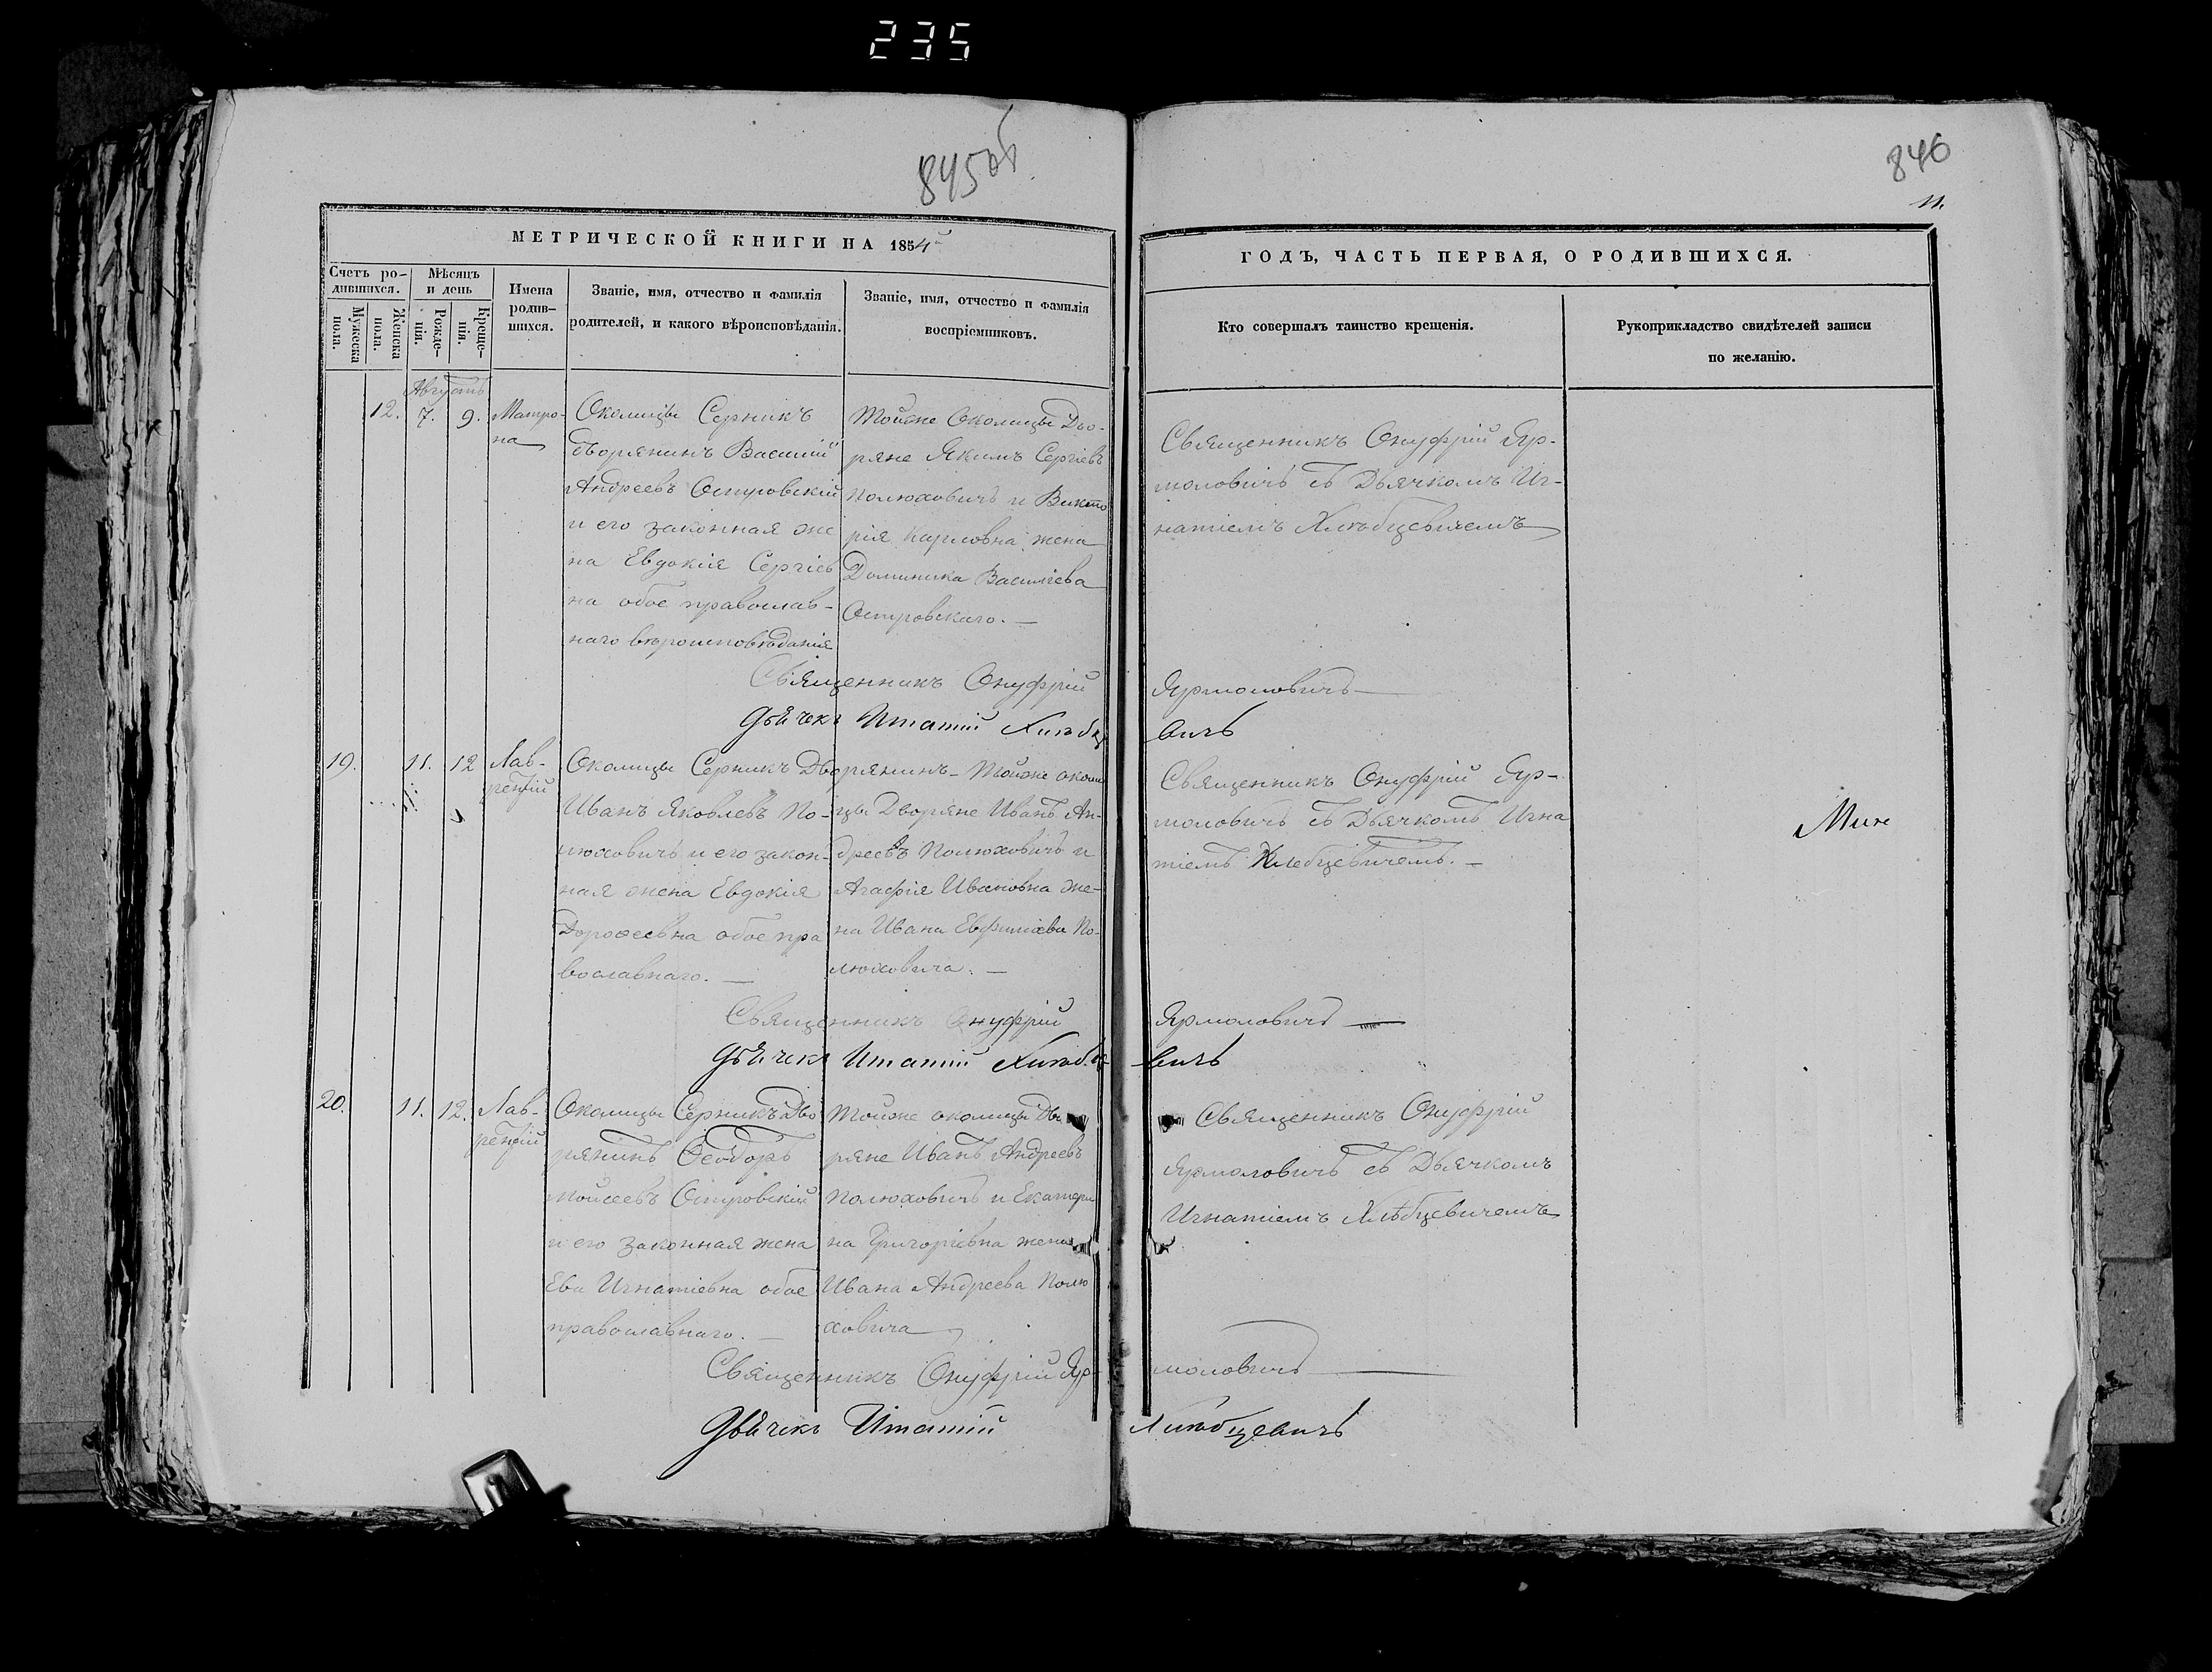 235
845об
846
11.
МЕТРИЧЕСКОЙ КНИГИ НА 1854й
ГОДЪ, ЧАСТЬ ПЕРВАЯ, О РОДИВШИХСЯ.
Счетъ ро-
дившихся.
Мужеска
пола.
Женска
пола.
Мѣсяцъ
и день
Рожде-
нія.
Креще-
нія.
Имена
родив-
шихся.
Званіе, имя, отчество и фамилія
родителей, и какого вѣроисповѣданія.
Званіе, имя, отчество и фамилія
воспріемниковъ.
Кто совершалъ таинство крещенія.
Рукоприкладство свидѣтелей записи
по желанію.
Августъ
12. 7. 9.
Матро-
на
Околицы Серникъ
дворянинъ Василій
Андреевъ Островскій
и его законная же
на Евдокія Сергіев
на обое православ-
наго вѣроисповѣданія
Тойже Околицы Дво-
ряне Якимъ Сергіевъ
Полюховичъ и Викто
рія Карловна жена
Доминика Василіева
Островскаго. —
Священникъ Онуфрій Яр-
моловичъ съ Дьячкомъ Иг-
натіемъ Хлѣбцевичемъ
Священникъ Онуфрій Ярмоловичъ —
Дьячекъ Игнатій Хлѣбцевичъ
19. 11. 12
Лав-
рентій
Околицы Серникъ Дворянинъ
Иванъ Яковлевъ По-
люховичъ и его закон-
ная жена Евдокія
Дорофеевна обое пра
вославнаго. —
Тойже околи
цы Дворяне Иванъ Ан-
дреевъ Полюховичъ и
Агафія Ивановна же-
на Ивана Евфиміева По-
люховича. —
Священникъ Онуфрій Яр-
моловичъ съ Дьячкомъ Игна
тіемъ Хлебцевичемъ. —
Священникъ Онуфрій Ярмоловичъ —
Дьячекъ Игнатій Хлѣбцевичъ
20. 11. 12.
Лав-
рентій
Околицы Серникъ Дво
рянинъ Ѳеодоръ
Мойсеевъ Островскій
и его законная жена
Ева Игнатіевна обое
православнаго. —
Тойже околицы Дво
ряне Иванъ Андреевъ
Полюховичъ и Екатери
на Григоріевна жена
Ивана Андреева Полю
ховича
Священникъ Онуфрій
Ярмоловичъ съ Дьячкомъ
Игнатіемъ Хлѣбцевичемъ
Священникъ Онуфрій Ярмоловичъ —
Дьячекъ Игнатій Хлѣбцевичъ